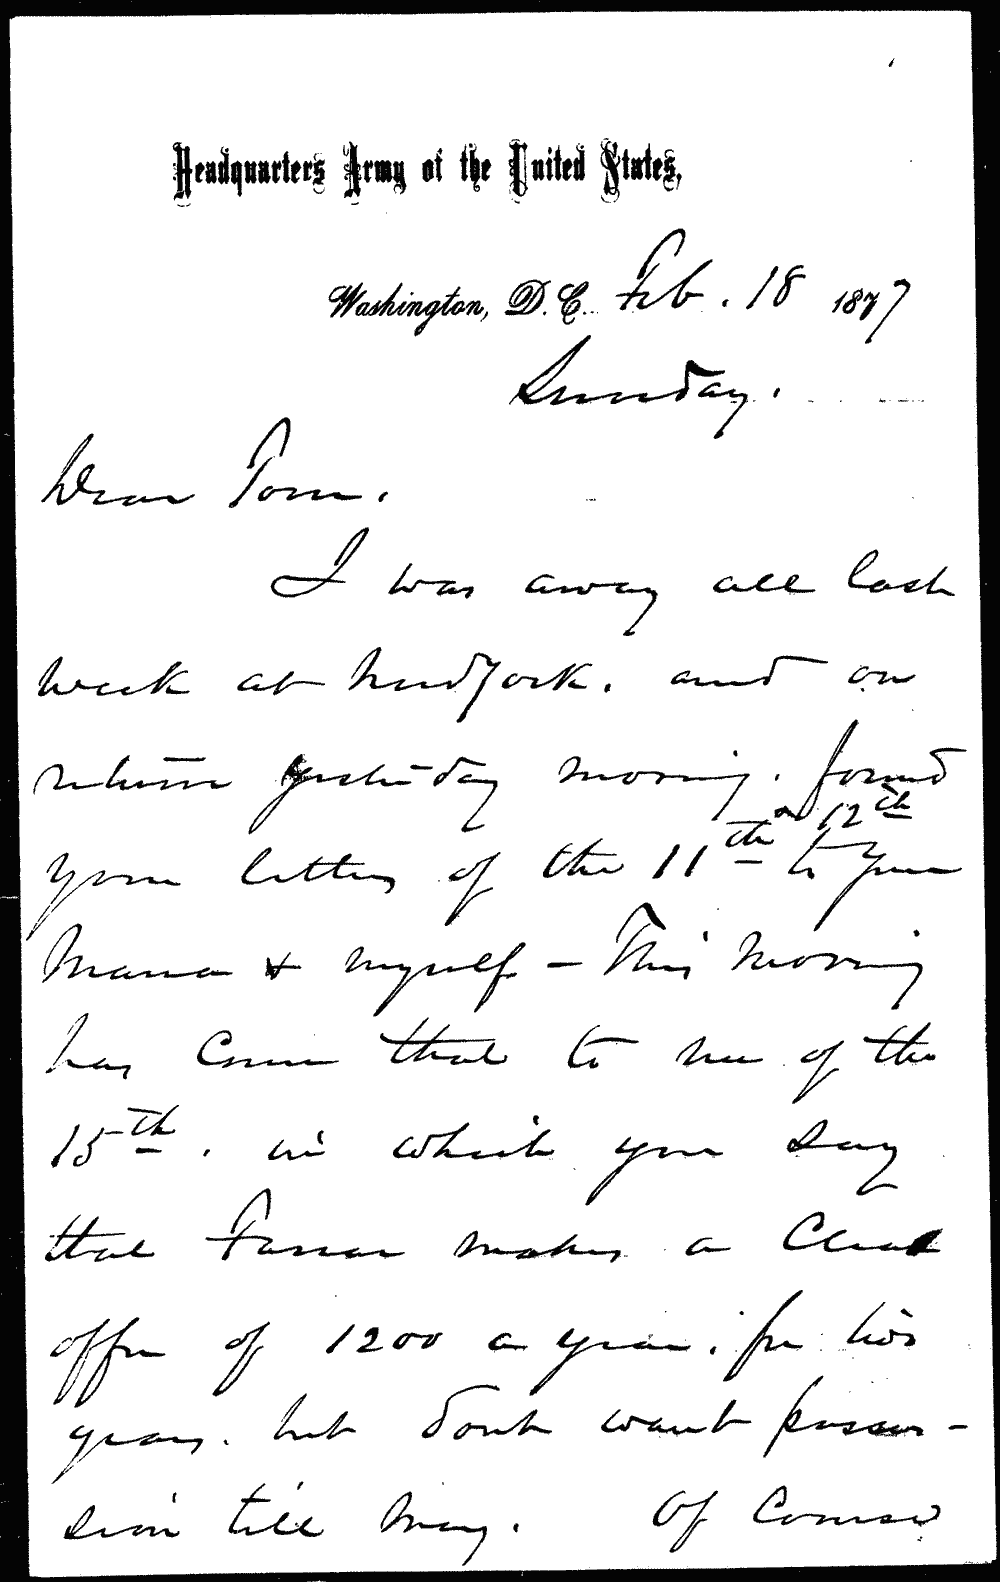 Headquarters Army of the United States,
Washington, D.C. Feb. 18 1877
Sunday.
Dear Tom.
I was away all last
week at New York, and on
return yesterday morning, found
your letters of the 11th & 12th to your
Mama & myself - This morning
has come that to me of the
15th. in which you say
that Farrar makes a clear
offer of 1200 a year, for two
years. but dont want posses-
sion till May. Of Course